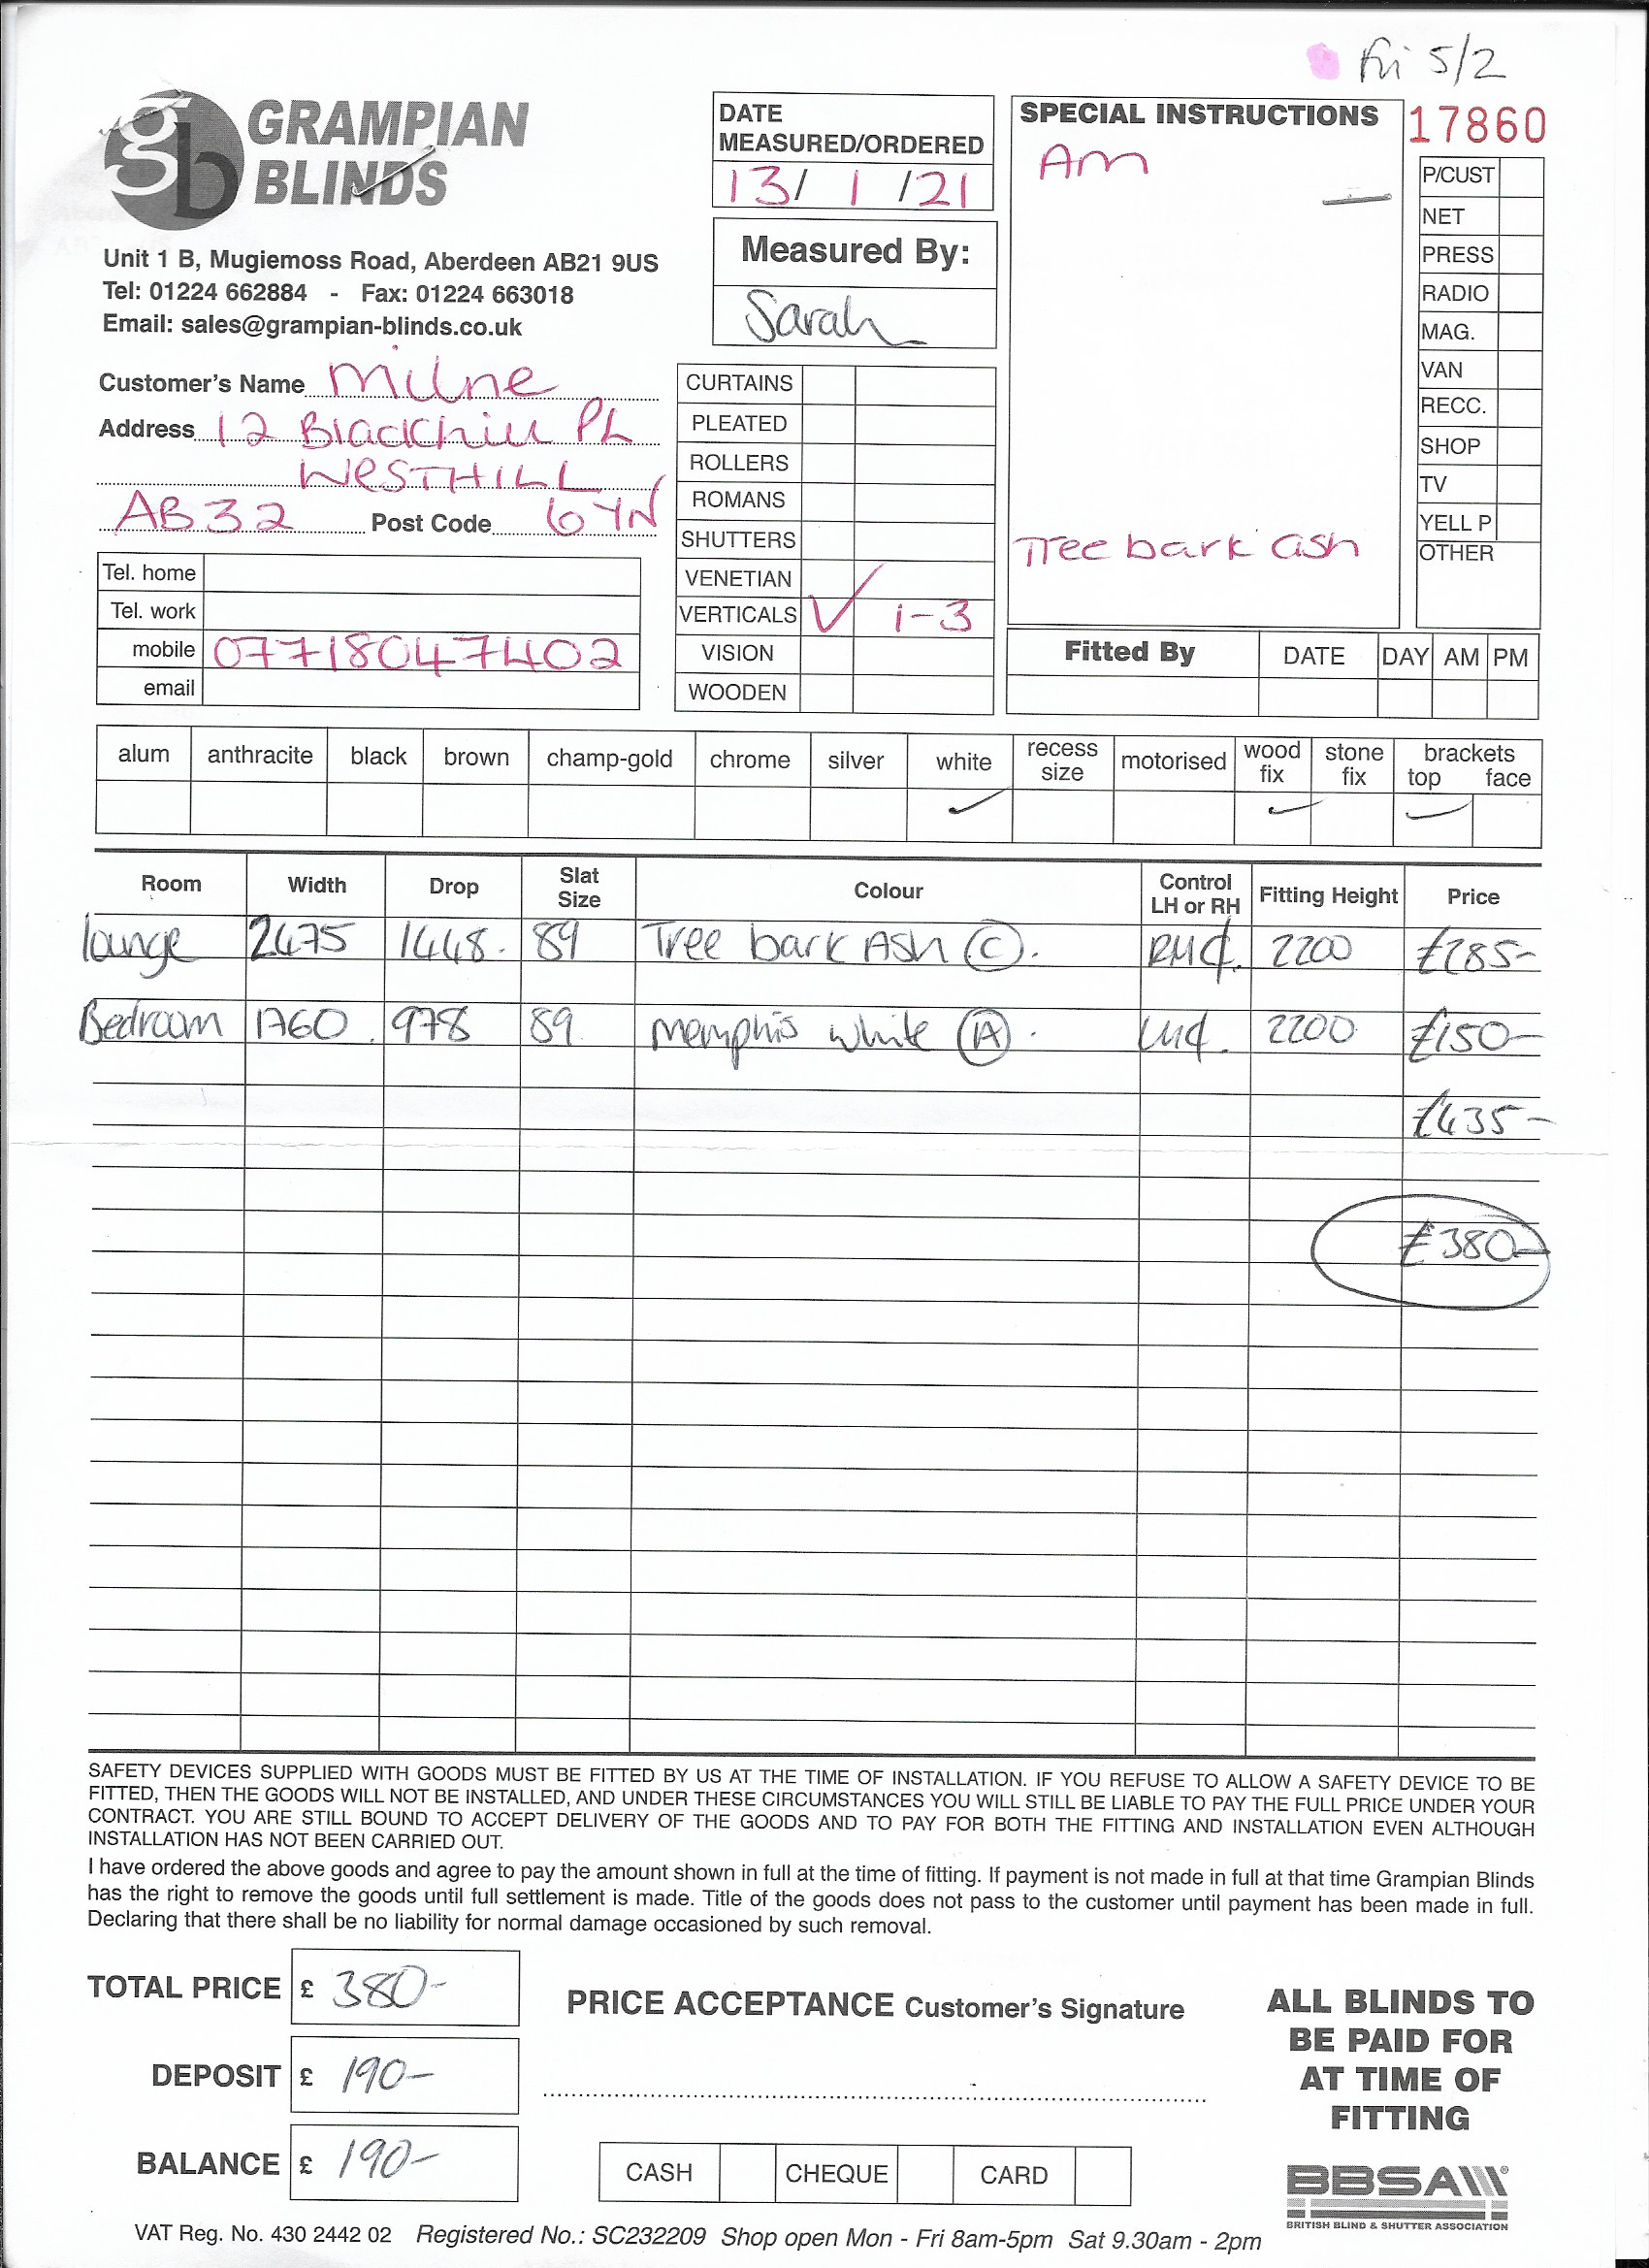 Fri 5/2
17860
gb GRAMPIAN BLINDS
Unit 1 B, Mugiemoss Road, Aberdeen AB21 9US
Tel: 01224 662884 - Fax: 01224 663018
Email: sales@grampian-blinds.co.uk
Customer's Name Milne
Address 12 Blackhill PL
WESTHILL
AB32 Post Code 6YN
Tel. home
Tel. work
mobile 07718047402
email
DATE
MEASURED/ORDERED
13/1/21
Measured By:
Sarah
CURTAINS
PLEATED
ROLLERS
ROMANS
SHUTTERS
VENETIAN
VERTICALS ✓ 1-3
VISION
WOODEN
SPECIAL INSTRUCTIONS
Am
Tree bark ash
P/CUST
NET
PRESS
RADIO
MAG.
VAN
RECC.
SHOP
TV
YELL P
OTHER
Fitted By DATE DAY AM PM
alum anthracite black brown champ-gold chrome silver white recess size motorised wood fix stone fix brackets top face
✓ ✓ ✓
Room Width Drop Slat Size Colour Control LH or RH Fitting Height Price
lounge 2475 1448. 89 Tree bark Ash (C). 2200 £285-
Bedroom 1760 978 89 memphis white (A). 2200 £150-
£435-
£380-
SAFETY DEVICES SUPPLIED WITH GOODS MUST BE FITTED BY US AT THE TIME OF INSTALLATION. IF YOU REFUSE TO ALLOW A SAFETY DEVICE TO BE
FITTED, THEN THE GOODS WILL NOT BE INSTALLED, AND UNDER THESE CIRCUMSTANCES YOU WILL STILL BE LIABLE TO PAY THE FULL PRICE UNDER YOUR
CONTRACT. YOU ARE STILL BOUND TO ACCEPT DELIVERY OF THE GOODS AND TO PAY FOR BOTH THE FITTING AND INSTALLATION EVEN ALTHOUGH
INSTALLATION HAS NOT BEEN CARRIED OUT.
I have ordered the above goods and agree to pay the amount shown in full at the time of fitting. If payment is not made in full at that time Grampian Blinds
has the right to remove the goods until full settlement is made. Title of the goods does not pass to the customer until payment has been made in full.
Declaring that there shall be no liability for normal damage occasioned by such removal.
TOTAL PRICE £ 380-
DEPOSIT £ 190-
BALANCE £ 190-
PRICE ACCEPTANCE Customer's Signature
CASH CHEQUE CARD
ALL BLINDS TO
BE PAID FOR
AT TIME OF
FITTING
BBSA
BRITISH BLIND & SHUTTER ASSOCIATION
VAT Reg. No. 430 2442 02 Registered No.: SC232209 Shop open Mon - Fri 8am-5pm Sat 9.30am - 2pm